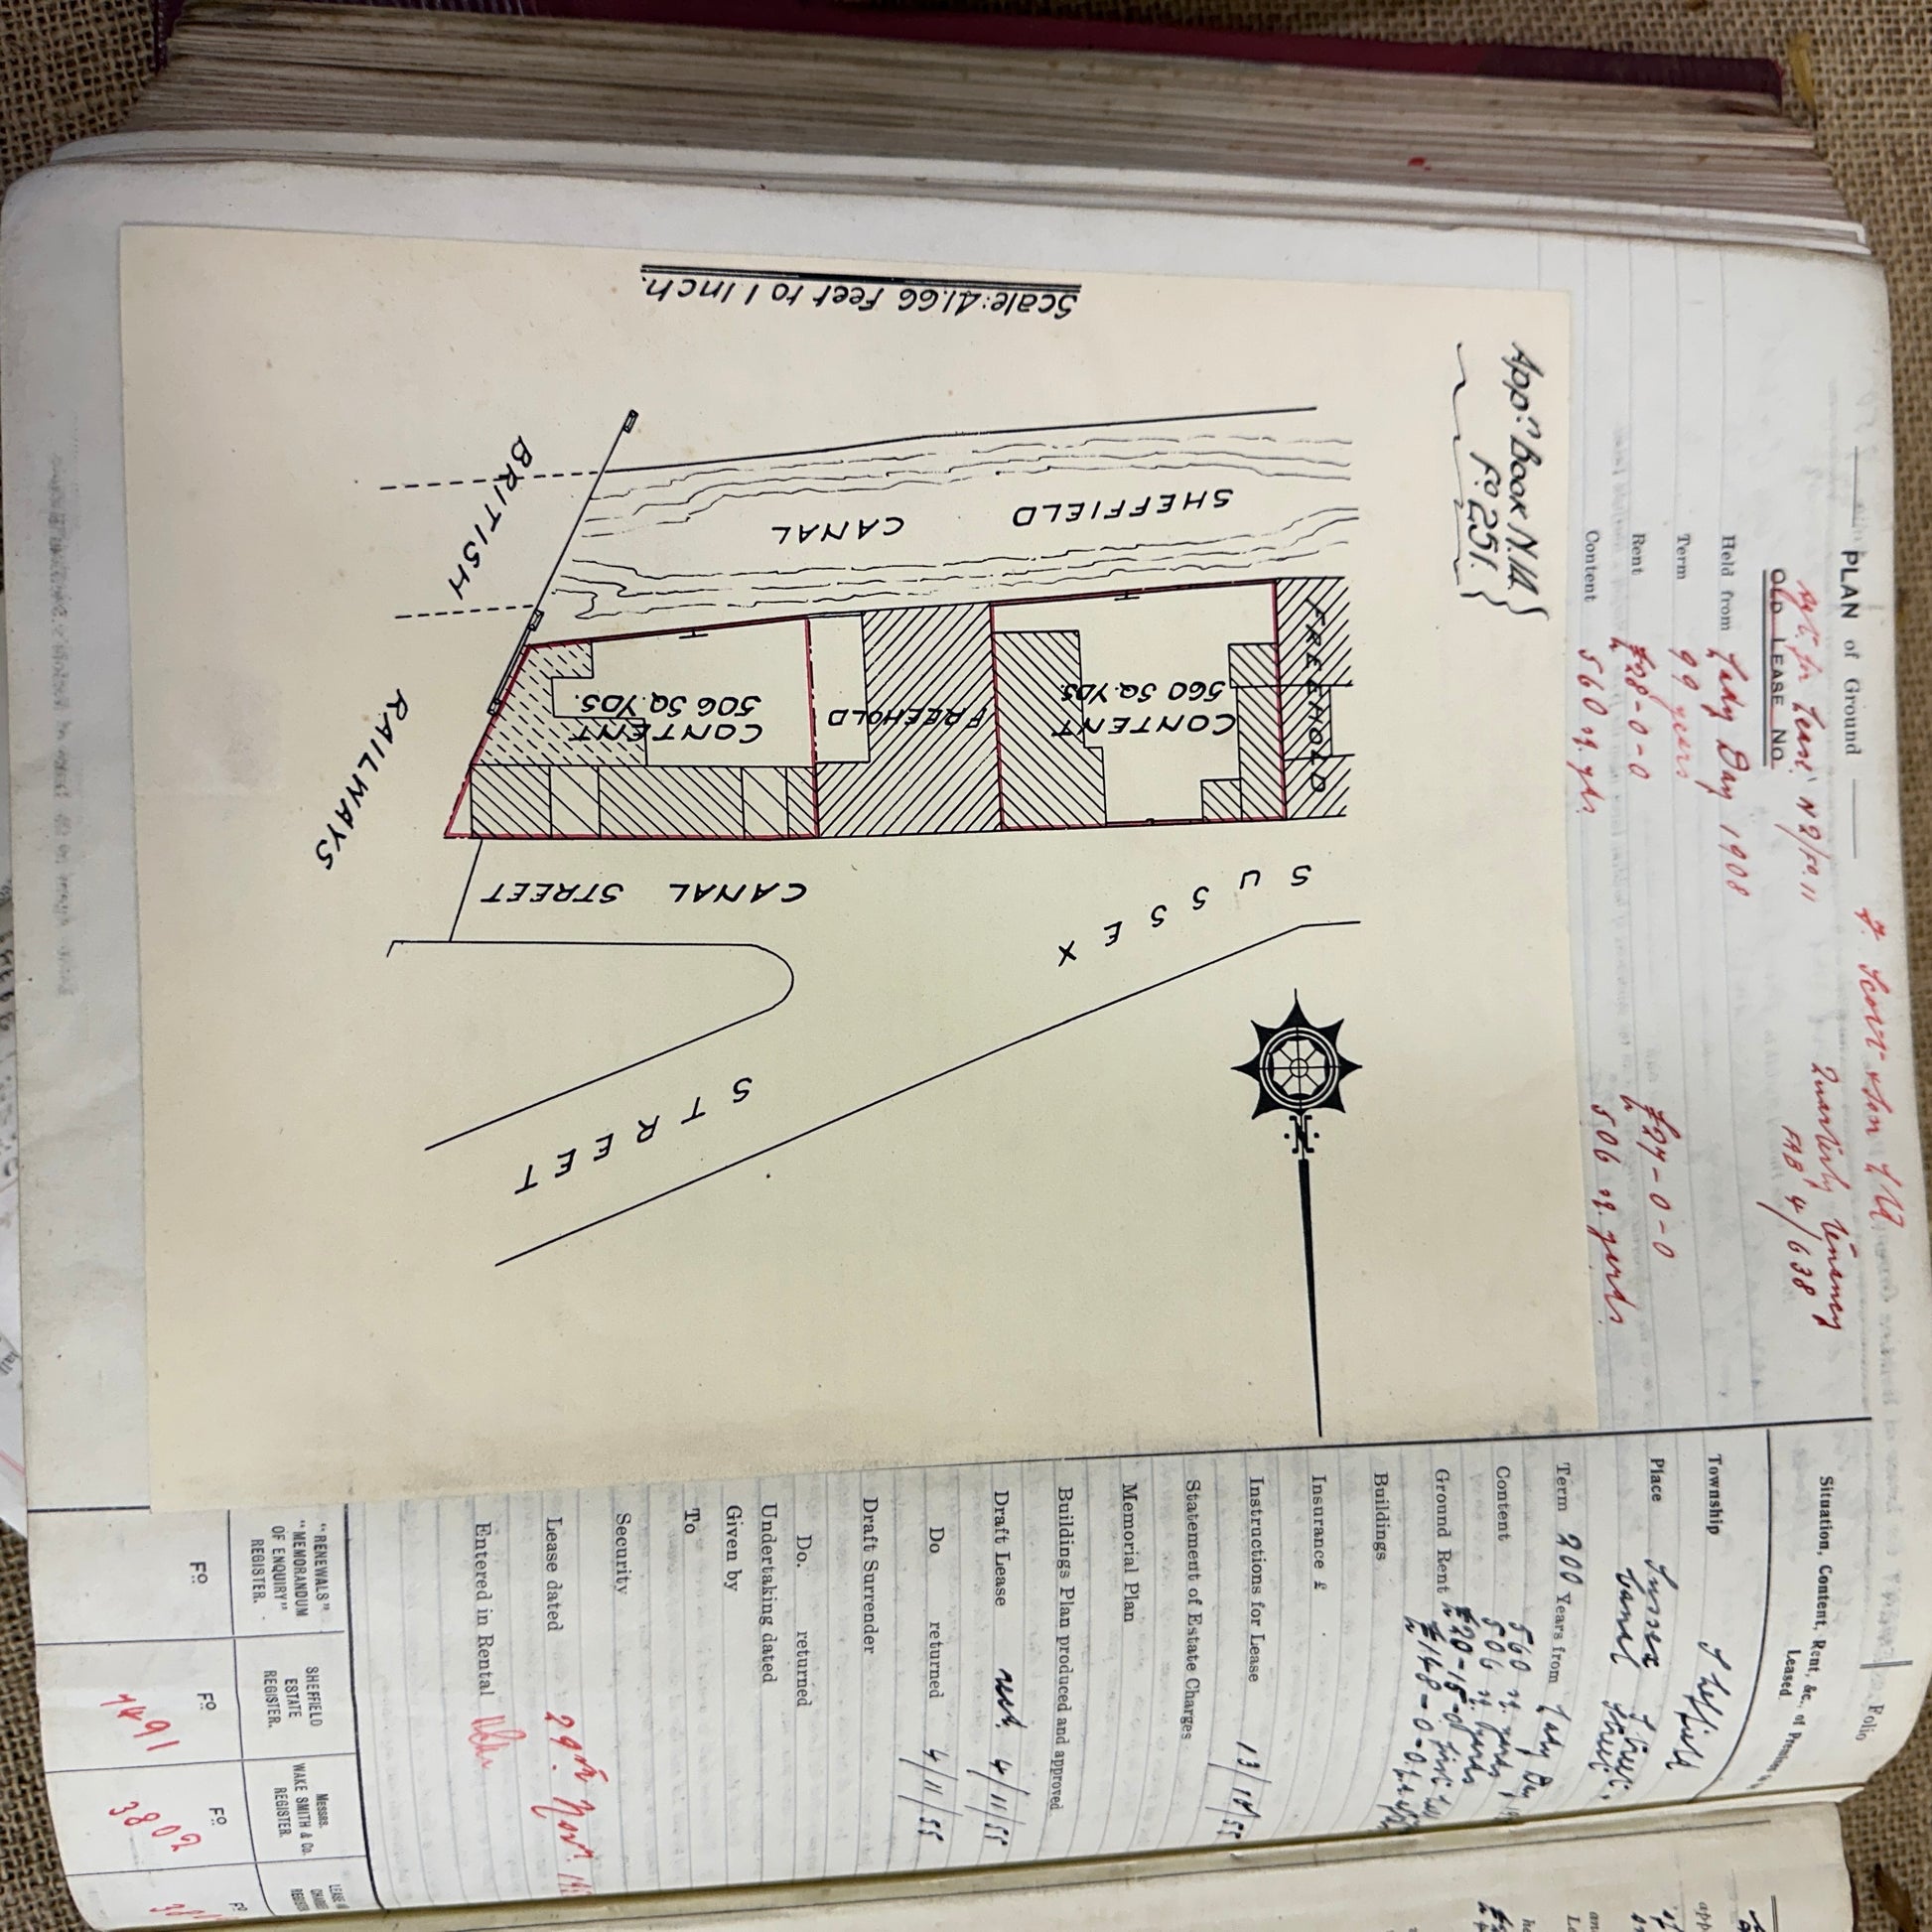 PLAN of Ground
OLD LEASE NO.
Held from Lady Day 1908
Term 99 years
Rent £28-0-0 £27-0-0
Content 560 sq. yds. 506 sq. yards.
Quarterly Tenancy
FAB 4/638
Book N.
Fo 251.
Scale: 41.66 Feet to 1 Inch.
SHEFFIELD CANAL
BRITISH RAILWAYS
FREEHOLD
CONTENT
560 SQ. YDS.
FREEHOLD
CONTENT
506 SQ. YDS.
CANAL STREET
SUSSEX STREET
N
Folio
Situation, Content, Rent, &c., of
Leased.
Township Sheffield
Place Sussex Street,
Canal Street
Term 200 Years from Lady
Content 560 sq. yards
506 sq. yards
Ground Rent £20-15-0
£148-0-0
Buildings
Insurance £
Instructions for Lease 13/10/55
Statement of Estate Charges
Memorial Plan
Buildings Plan produced and approved
Draft Lease recd. 4/11/55
Do returned 4/11/55
Draft Surrender
Do. returned
Undertaking dated
Given by
To
Security
Lease dated 29th Novr.
Entered in Rental
"RENEWALS"
"MEMORANDUM
OF ENQUIRY"
REGISTER.
SHEFFIELD
ESTATE
REGISTER.
Messrs.
WAKE SMITH & Co.
REGISTER.
Fo
Fo 7491
Fo 3802
Fo